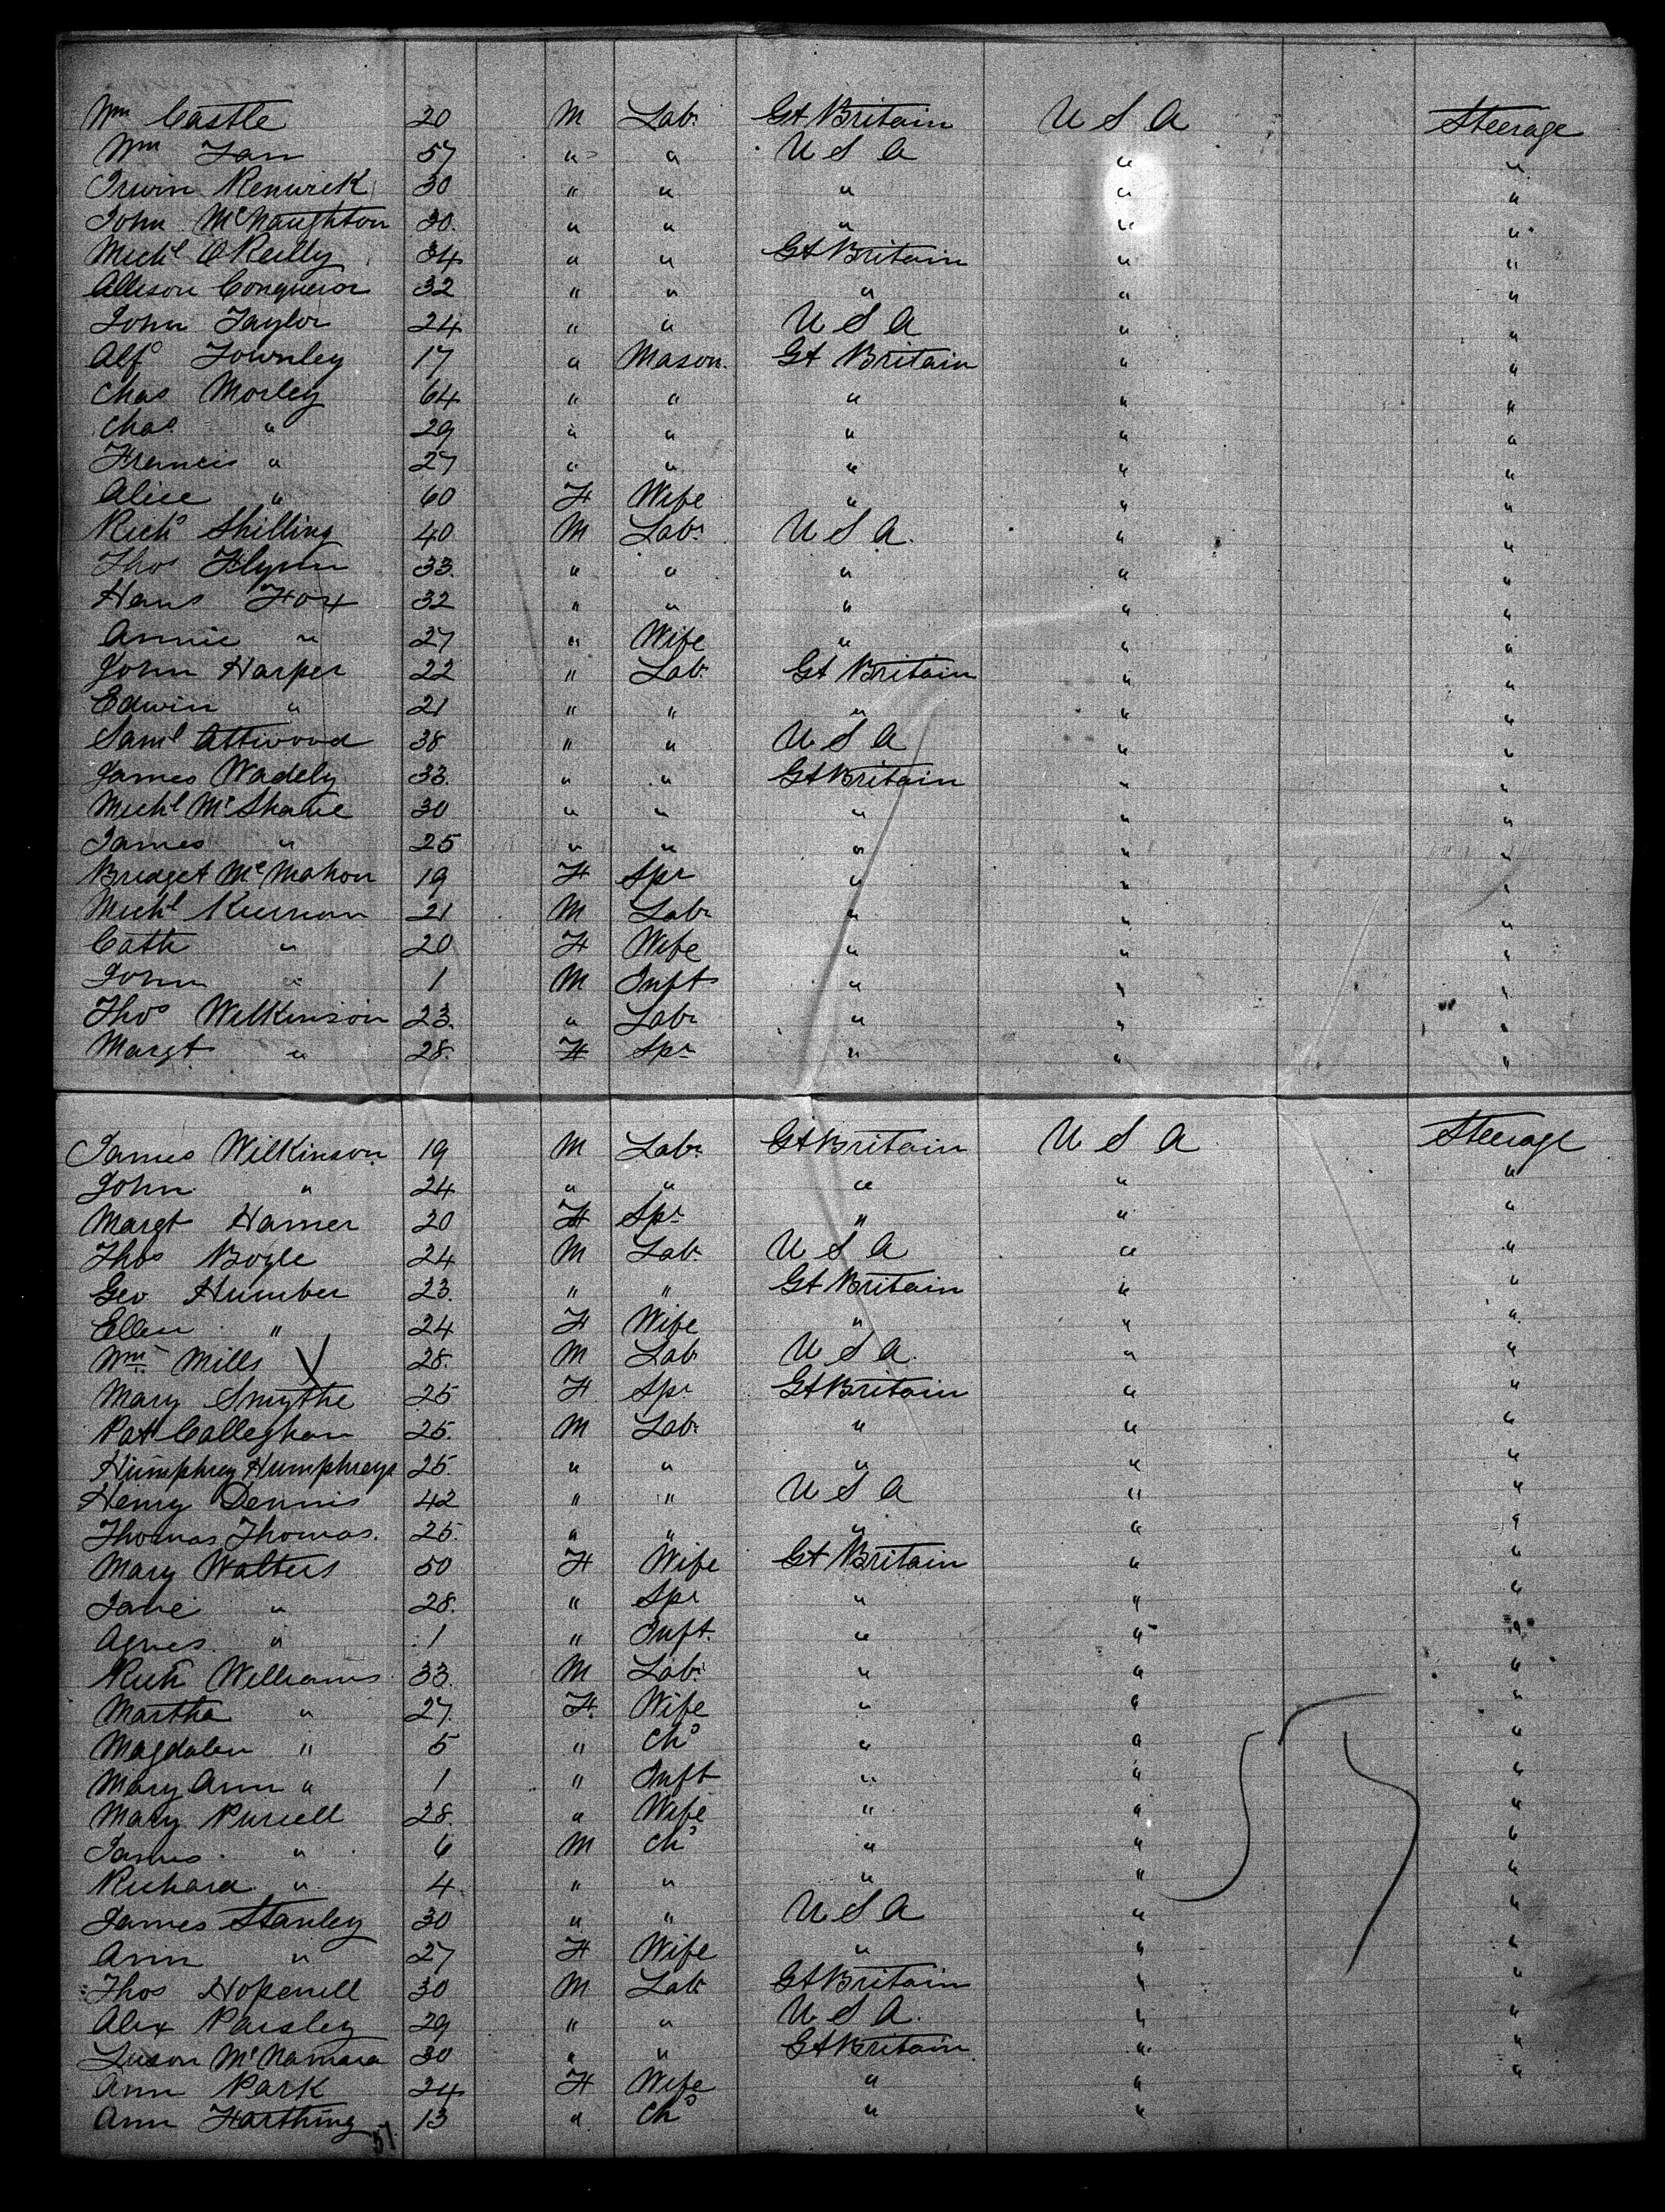 Wm Castle 20 M Labr Gt Britain U S A Steerage
Wm Ian 57 " " U S A " "
Irwin Renwick 30 " " " " "
John McNaughton 30 " " " " "
Michl O'Reilly 34 " " Gt Britain " "
Allison Conqueror 32 " " " " "
John Taylor 24 " " U S A " "
Alfd Townley 17 " Mason Gt Britain " "
Chas Morley 64 " " " " "
Chas " 29 " " " " "
Francis " 27 " " " " "
Alice " 60 F Wife " " "
Richd Shilling 40 M Labr U S A " "
Thos Flynn 33 " " " " "
Hans Fox 32 " " " " "
Annie " 27 " Wife " " "
John Harper 22 " Labr Gt Britain " "
Edwin " 21 " " " " "
Saml Attwood 38 " " U S A " "
James Wadely 33 " " Gt Britain " "
Michl McShane 30 " " " " "
James " 25 " " " " "
Bridget McMahon 19 F Spr " " "
Michl Kiernan 21 M Labr " " "
Cath " 20 F Wife " " "
John " 1 M Inft " " "
Thos Wilkinson 23 " Labr " " "
Margt " 28 F Spr " " "
James Wilkinson 19 M Labr Gt Britain U S A Steerage
John " 24 " " " " "
Margt Hamer 20 F Spr " " "
Thos Boyle 24 M Labr U S A " "
Geo Humber 23 " " Gt Britain " "
Ellen " 24 F Wife " " "
Wm Mills 28 M Labr U S A " "
Mary Smythe 25 F Spr Gt Britain " "
Pat Calleghan 25 M Labr " " "
Humphrey Humphreys 25 " " " " "
Henry Dennis 42 " " U S A " "
Thomas Thomas 25 " " " " "
Mary Walters 50 F Wife Gt Britain " "
Jane " 28 " Spr " " "
Agnes " 1 " Inft " " "
Rich Williams 33 M Labr " " "
Martha " 27 F Wife " " "
Magdalen " 5 " Chd " " "
Mary Ann " 1 " Inft " " "
Mary Purcell 28 " Wife " " "
James " 6 M Chd " " "
Richard " 4 " " " " "
James Stanley 30 " " U S A " "
Ann " 27 F Wife " " "
Thos Hopewell 30 M Labr Gt Britain " "
Alex Paisley 29 " " U S A " "
McNamara 30 " " Gt Britain " "
Ann Park 24 F Wife " " "
Ann Farthing 13 " Chd " "
57